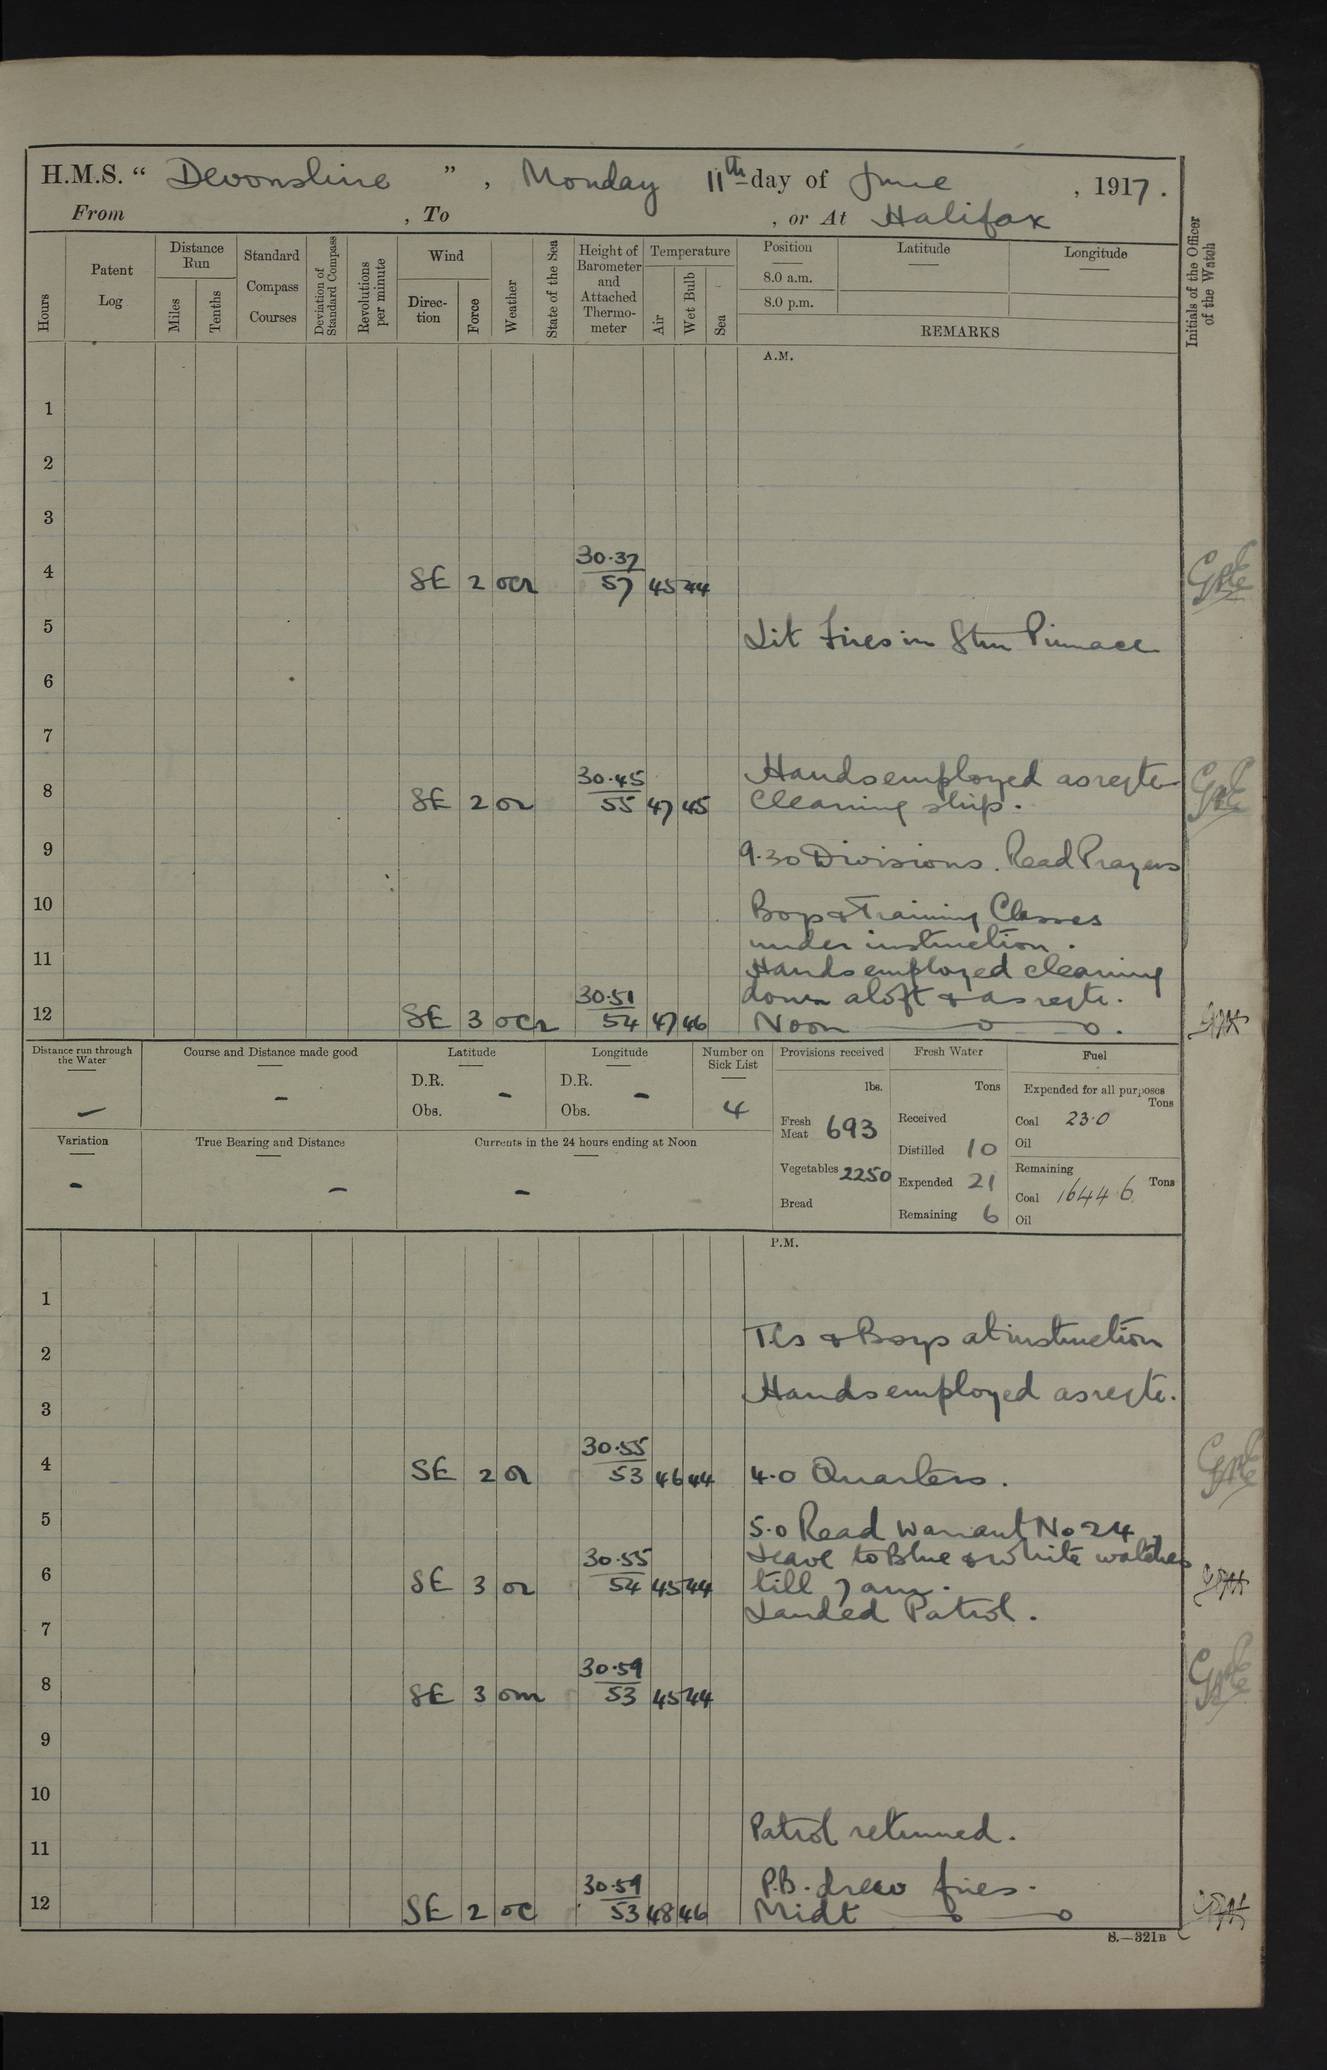 H.M.S. “ Devonshire ” , Monday 11th day of June , 1917.
From , To , or At Halifax
Hours
Patent Log
Distance Run
Miles
Tenths
Standard Compass Courses
Deviation of Standard Compass
Revolutions per minute
Wind
Direction
Force
Weather
State of the Sea
Height of Barometer and Attached Thermometer
Temperature
Air
Wet Bulb
Sea
Position
8.0 a.m.
8.0 p.m.
Latitude
Longitude
REMARKS
Initials of the Officer of the Watch
A.M.
1
2
3
4 SE 2 ocr 30·37 57 45 44
5 Lit Fires in Stm Pinnace
6
7
Hands employed as reqte
8 SE 2 or 30·45 55 47 45 Cleaning ship.
9 9.30 Divisions. Read Prayers
10 Boys & Training Classes
under instruction.
11 Hands employed cleaning
down aloft & as reqte.
12 SE 3 ocr 30·51 54 47 46 Noon
Distance run through the Water
Course and Distance made good
-
Latitude
D.R.
Obs.
-
Longitude
D.R.
Obs.
-
Number on Sick List
4
Provisions received
lbs.
Fresh Meat 693
Vegetables 2250
Bread
Fresh Water
Tons
Received
Distilled 10
Expended 21
Remaining 6
Fuel
Expended for all purposes
Tons
Coal 23·0
Oil
Remaining
Tons
Coal 1644·6
Oil
Variation
-
True Bearing and Distance
-
Currents in the 24 hours ending at Noon
-
P.M.
1
2 T.Cs & Boys at instruction
3 Hands employed as reqte.
4 SE 2 or 30·55 53 46 44 4.0 Quarters.
5 5.0 Read Warrant No 24
Leave to Blue & White watches
6 SE 3 or 30·55 54 45 44 till 7 am.
Landed Patrol.
7
8 SE 3 om 30·59 53 45 44
9
10
Patrol returned.
11
P.B. drew fires.
12 SE 2 oc 30·59 53 48 46 Midt
S.—321B